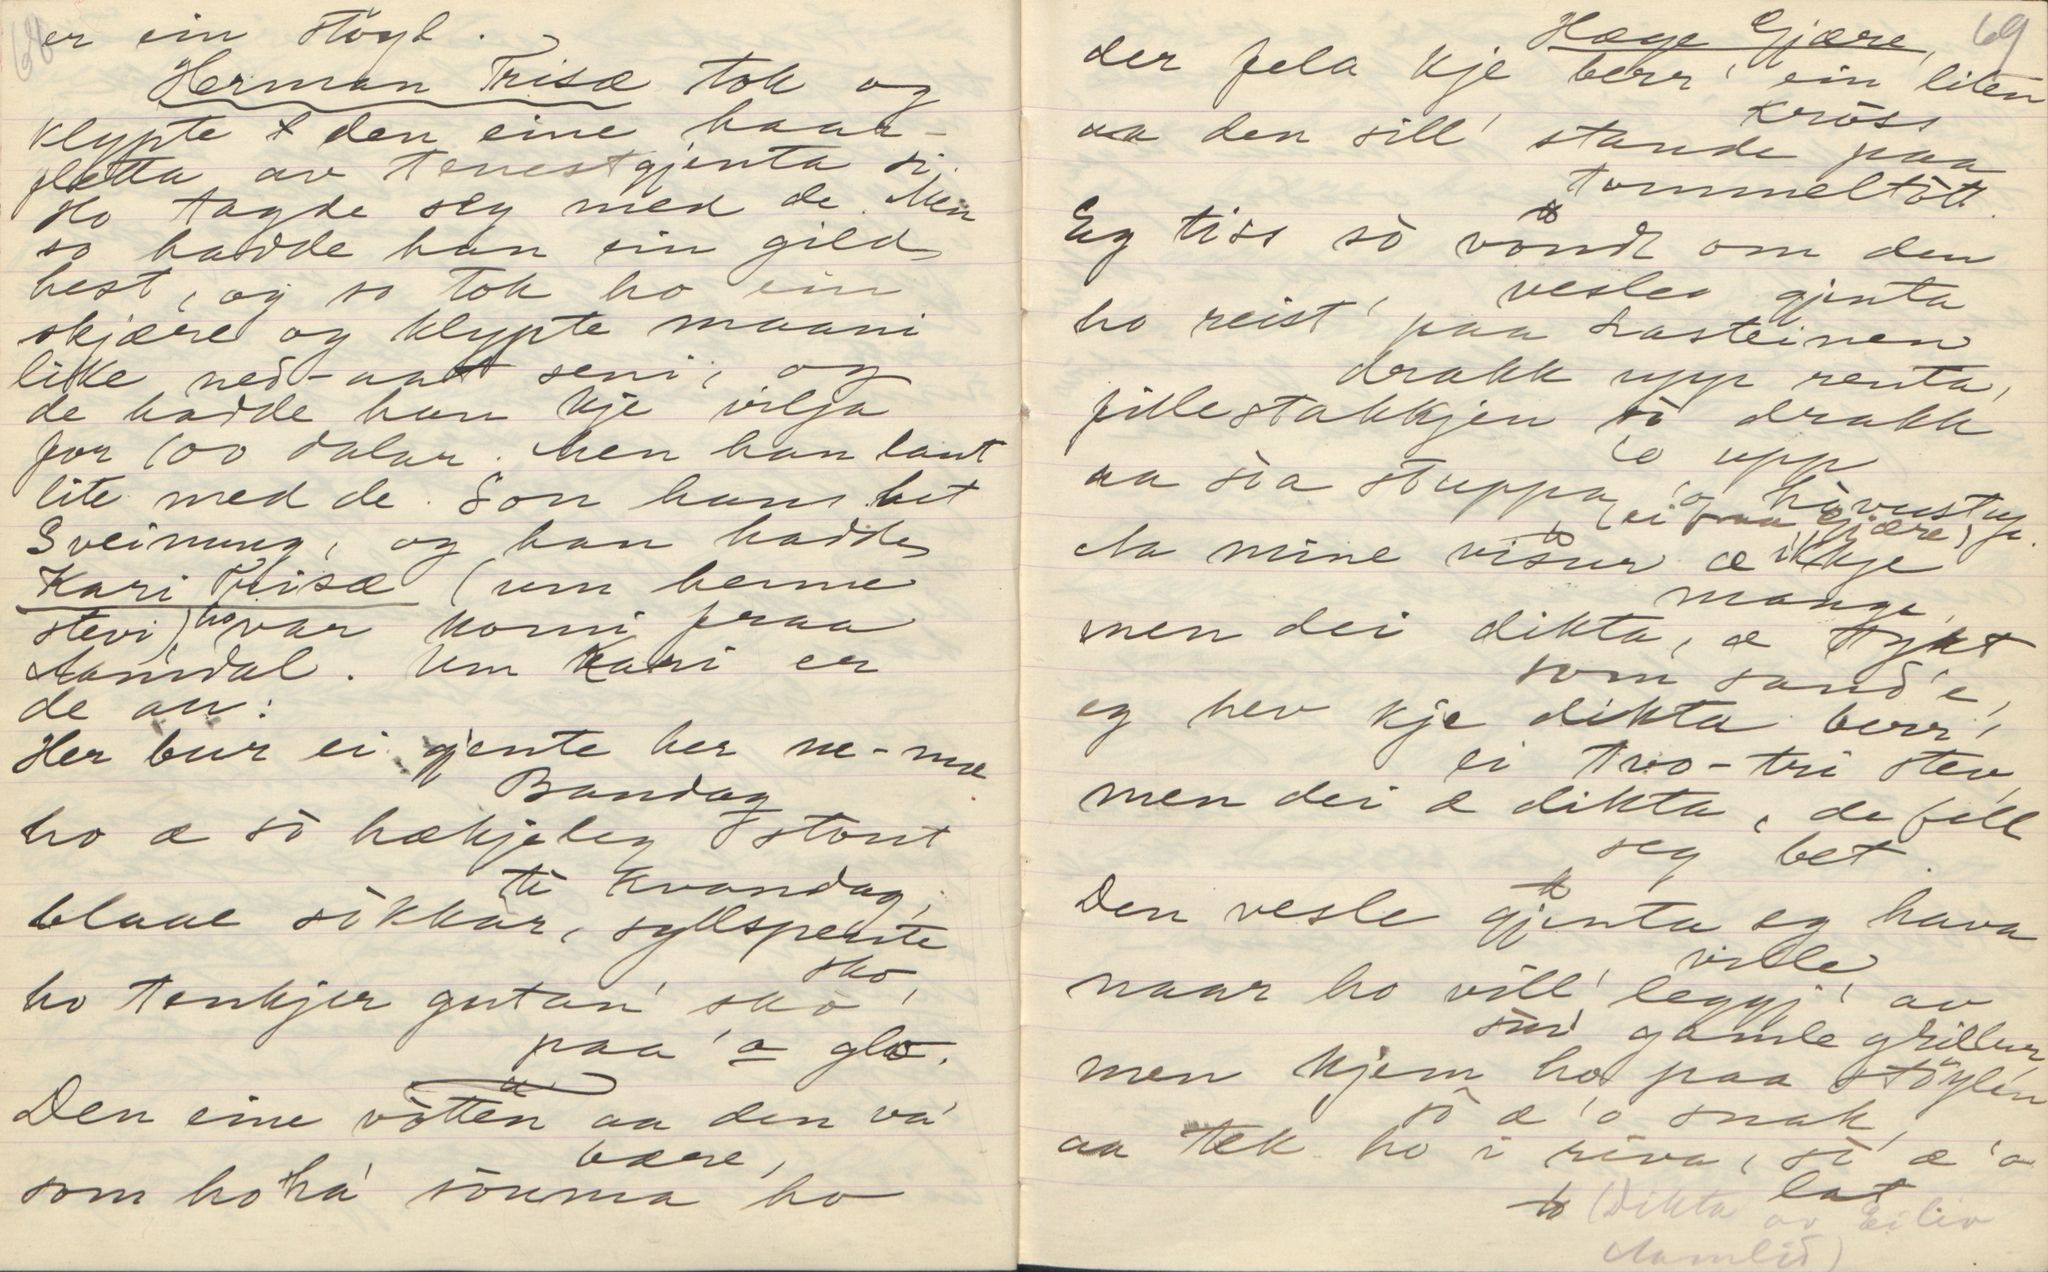 68
er ein støyl.
Herman Trisæ tok og
klypte den eine haar-
fletta av tenestgjenta si.
Ho tagde seg med de. Men
so hadde han ein gild
hest, og so tok ho ein
skjære og klypte maani
like ned-aat seni, og
de hadde han kje vilja
for 100 dalar. Men han laut
lite med de. Son hans het
Sveinung, og han hadde
Kari Trisæ (um henne
stevi) ho var komi fraa
Aamdal. Um Kari er
de an:
Her bur ei gjente her ne-mæ
Bandag
ho æ sò hækjeleg stort
ti Kvandag,
blaae sòkkar, syllspente
sko,
ho tenkjer gutan' sko'
paa 'o glo.
Den eine vòtten aa den va'
bære,
som ho ha' sòuma ho
69
Hæge Gjære,
der fela kje berr' ein liten
kròss
aa den sill' stande paa
tommeltòtt.
Eg tiss sò vondt om den
vesles gjenta
ho reist' paa Lasteinen
drakk upp renta,
fillestakkjen sò drakk
'o upp
aa sòa stuppa 'o i hòvustup.
(ei fraa Gjære)
Aa mine visur æ ikkje
mange,
men dei dikta, æ tykt
som sand'e,
eg hev kje dikta berr'
ei tvo-tri stev,
men dei æ dikta, de fell
seg bet.
Den vesle gjenta eg hava
ville
naar ho vill' leggj' av
sin' gamle grillur,
men kjem ho paa støylen
sò æ 'o snak,
aa tek ho i riva, sò æ 'o
lat
(Dikta av Eiliv
Aamlid)